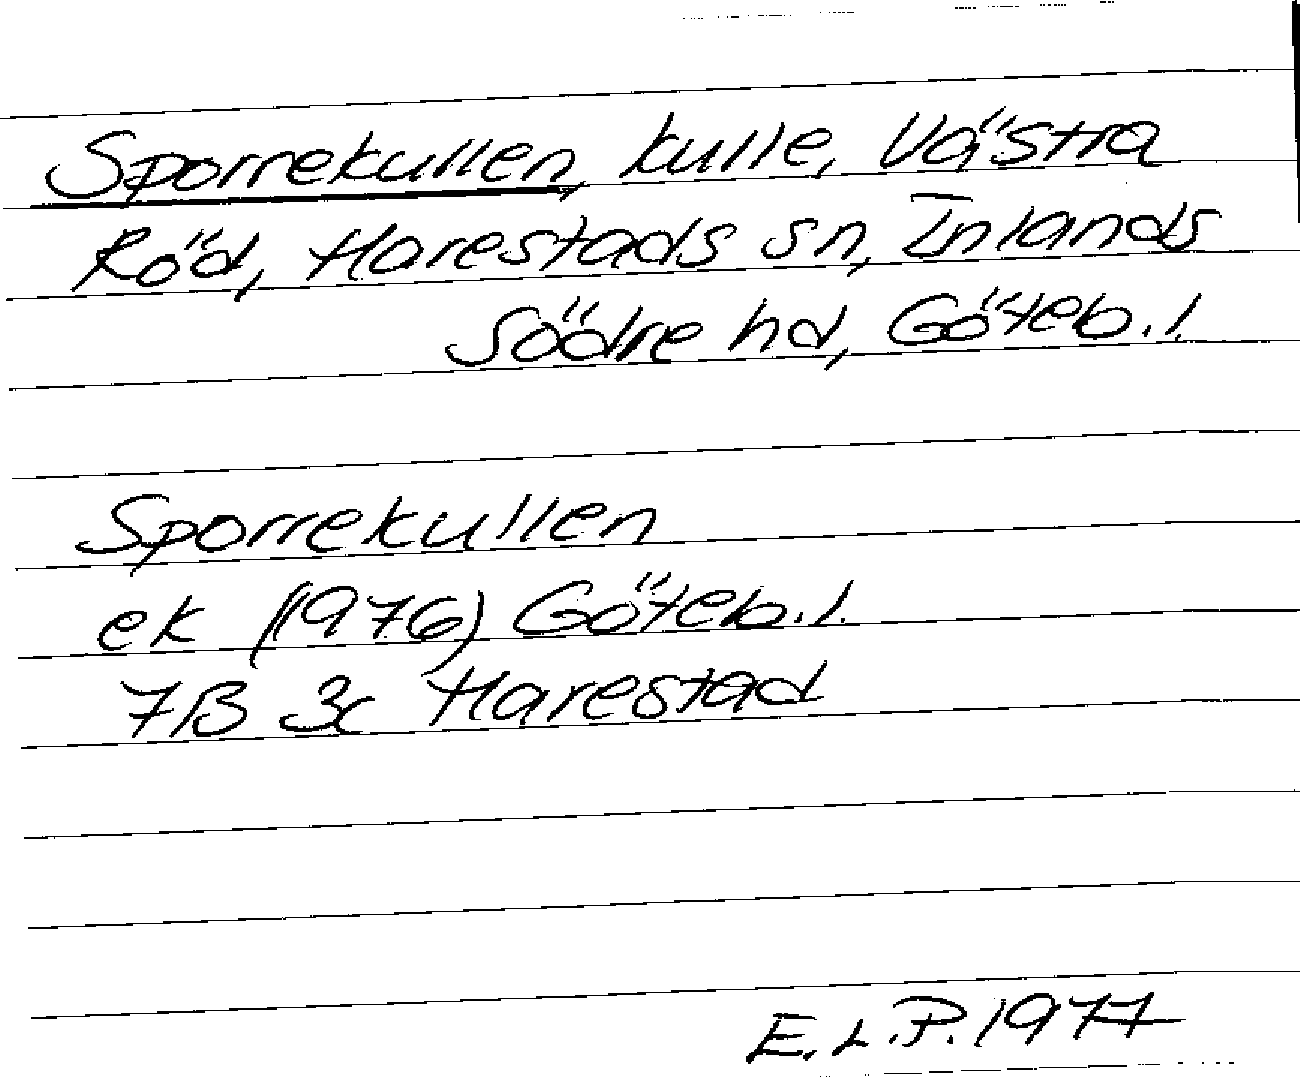 Sporrekullen, kulle, Västra
Röd, Harestads sn, Inlands
Södre hd, Göteb.l.
Sporrekullen
ek (1976) Göteb.l.
7B 3c Harestad
E.L.P. 1977